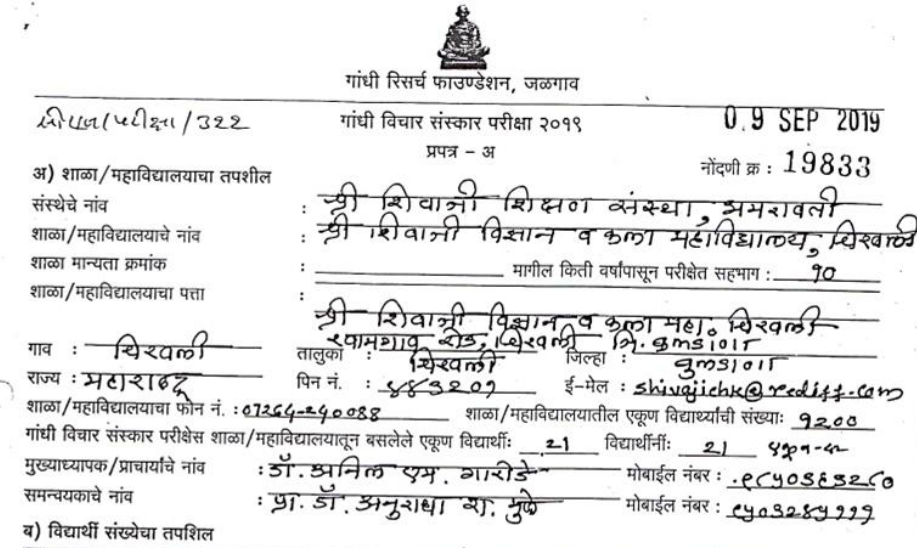 गांधी रिसर्च फाउण्डेशन, जळगाव
/परीक्षा/३२२ गांधी विचार संस्कार परीक्षा २०१९ 0 9 SEP 2019
प्रपत्र - अ
नोंदणी क्र : 19833
अ) शाळा/महाविद्यालयाचा तपशील
संस्थेचे नांव : श्री शिवाजी शिक्षण संस्था, अमरावती
शाळा/महाविद्यालयाचे नांव : श्री शिवाजी विज्ञान व कला महाविद्यालय, चिखली
शाळा मान्यता क्रमांक : मागील किती वर्षांपासून परीक्षेत सहभाग : १०
शाळा/महाविद्यालयाचा पत्ता :
श्री शिवाजी विज्ञान व कला महा. चिखली
खामगाव रोड, चिखली जि. बुलडाणा
गाव : चिखली तालुका : चिखली जिल्हा : बुलडाणा
राज्य : महाराष्ट्र पिन नं. : ४४३२०१ ई-मेल : shivajichk@rediff.com
शाळा/महाविद्यालयाचा फोन नं. : 07264-240088 शाळा/महाविद्यालयातील एकूण विद्यार्थ्यांची संख्याः १२००
गांधी विचार संस्कार परीक्षेस शाळा/महाविद्यालयातून बसलेले एकूण विद्यार्थीः 21 विद्यार्थीनींः 21
मुख्याध्यापक/प्राचार्यांचे नांव : डॉ. अनिल एम. गारोडे मोबाईल नंबर :
समन्वयकाचे नांव : प्रा. डॉ. अनुराधा श. मुळे मोबाईल नंबर : ९५०३२८५१११
ब) विद्यार्थी संख्येचा तपशिल